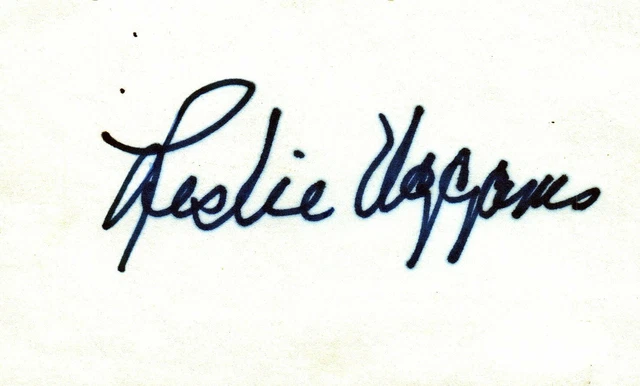 Leslie Uggams